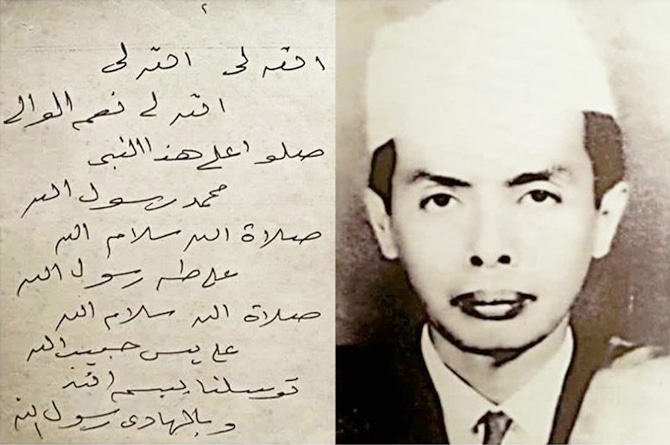 ٢
الله لى الله لى
الله لى نعم الوالى
صلوا على هذا النبى
محمد رسول الله
صلاة الله سلام الله
على طه رسول الله
صلاة الله سلام الله
على يس حبيب الله
توسلنا ببسم الله
وبالهادى رسول الله